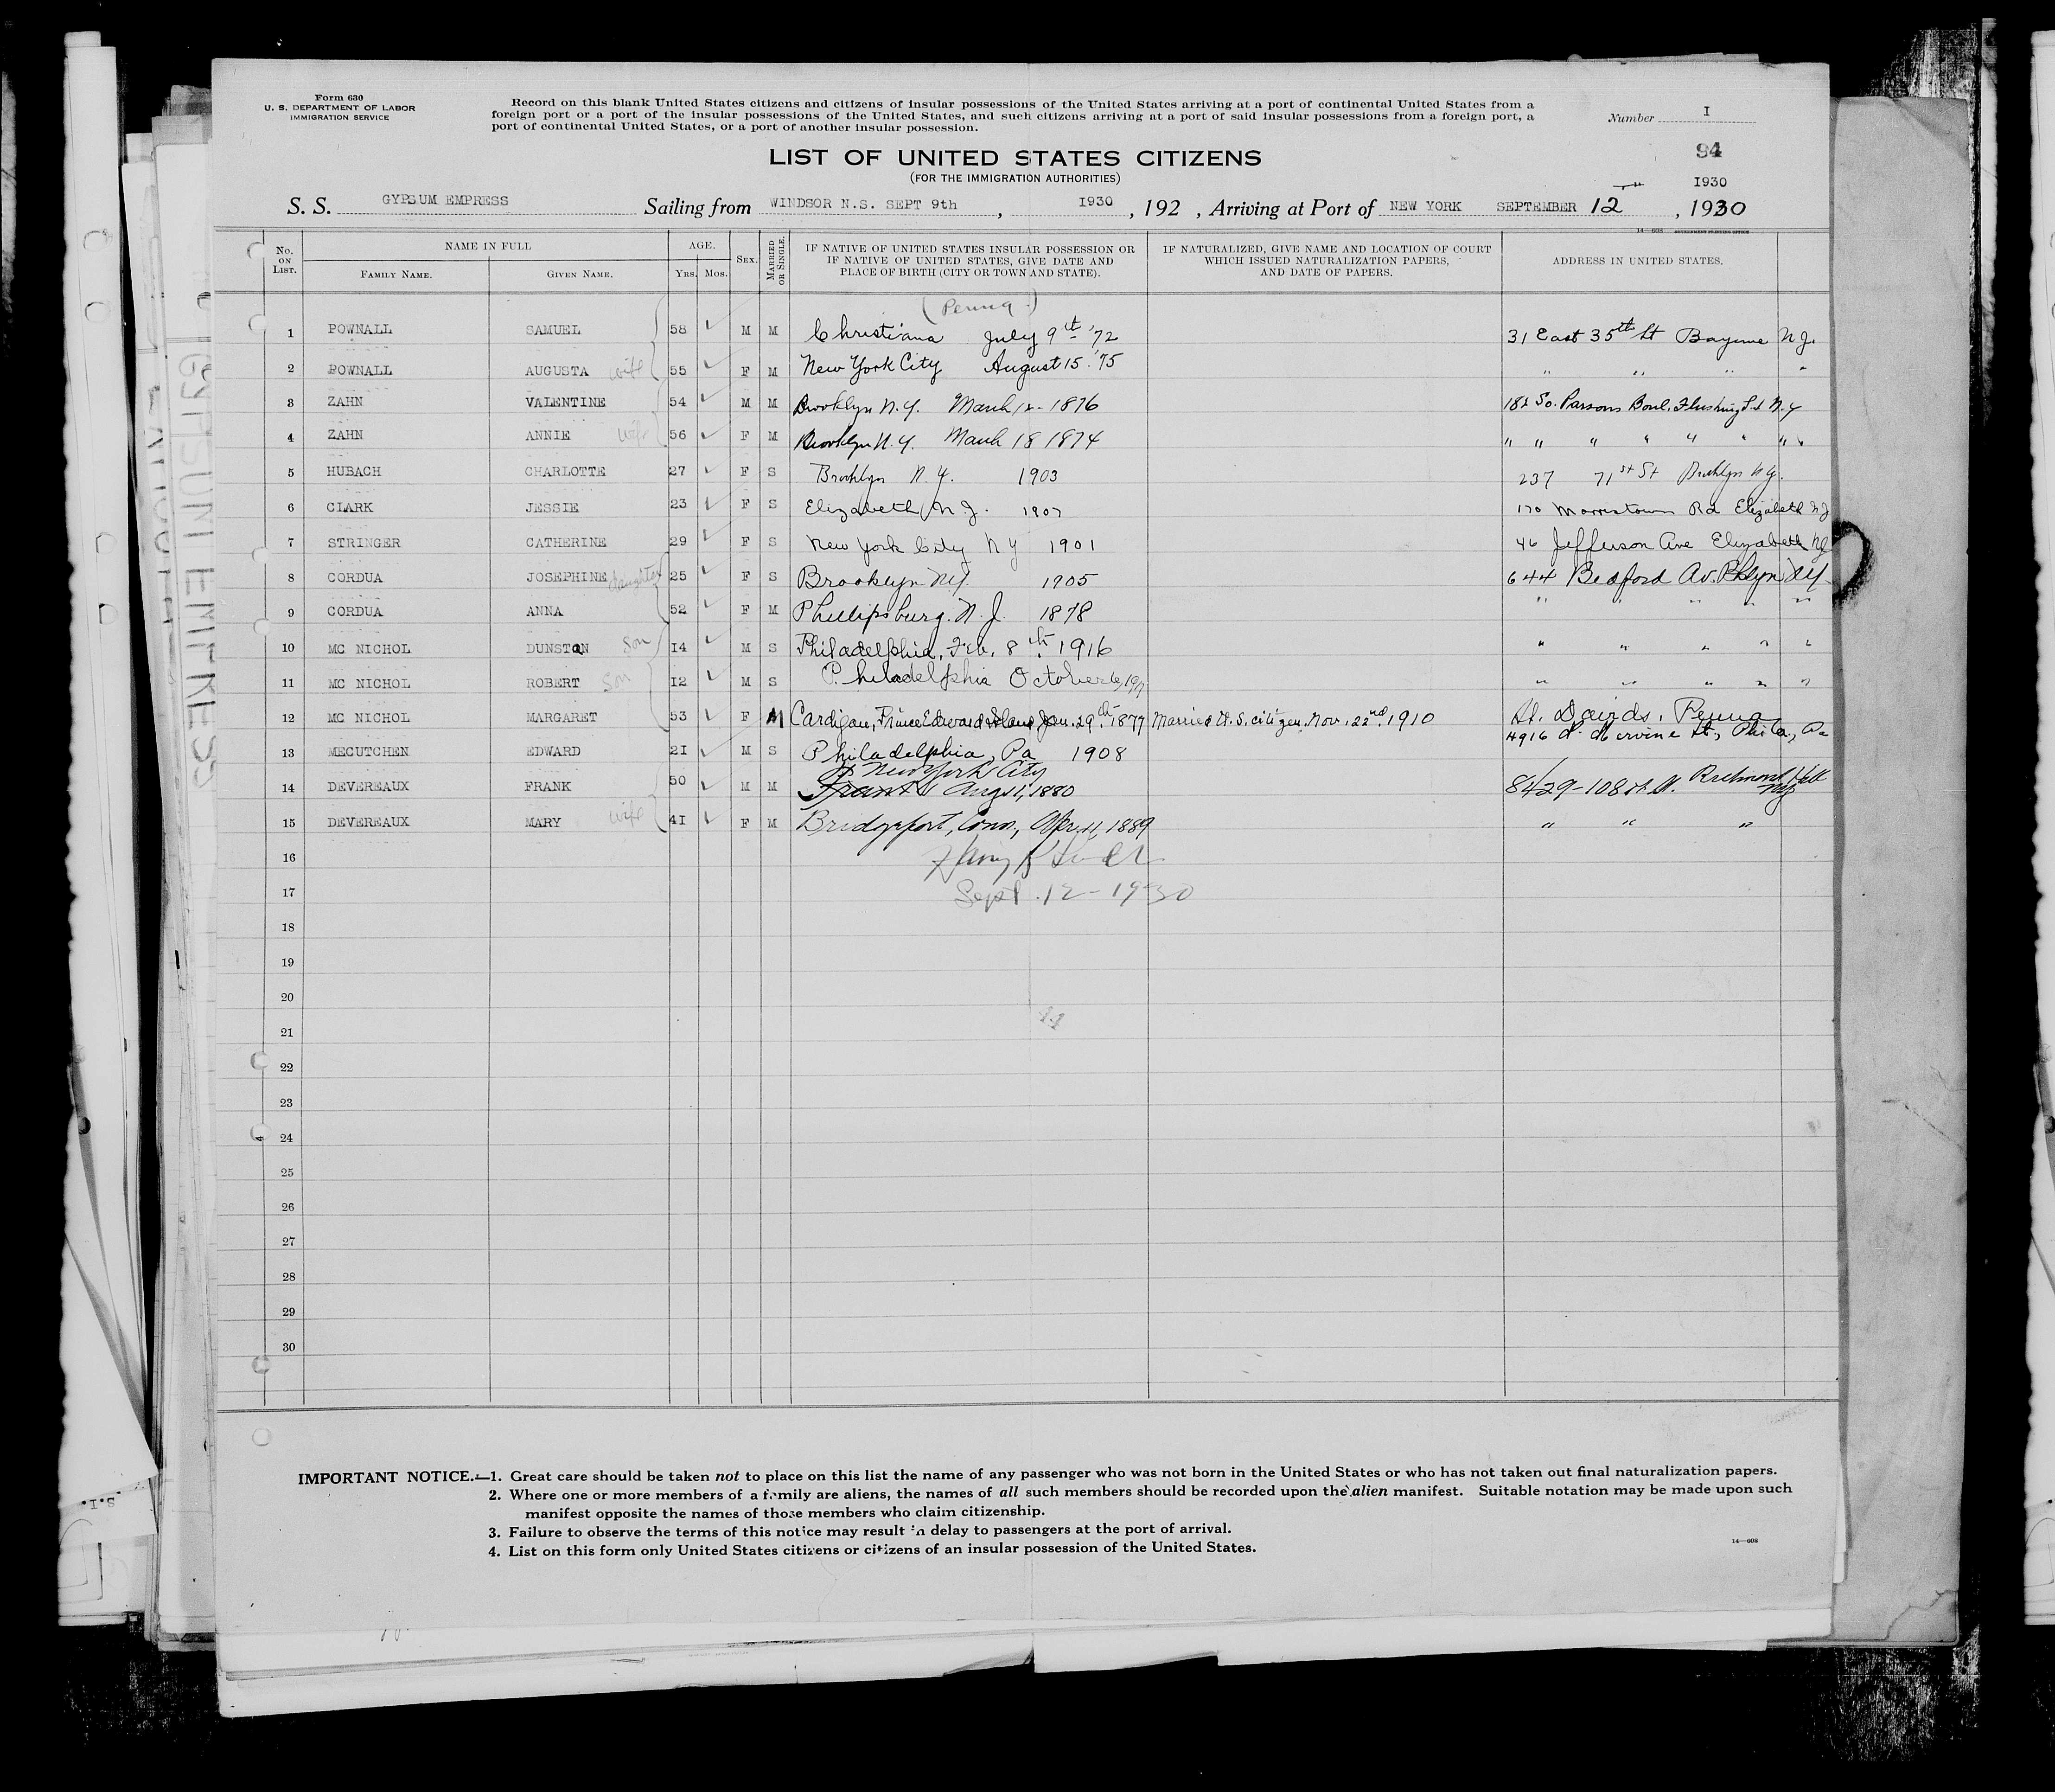 Form 630
U. S. DEPARTMENT OF LABOR
IMMIGRATION SERVICE
Record on this blank United States citizens and citizens of insular possessions of the United States arriving at a port of continental United States from a
foreign port or a port of the insular possessions of the United States, and such citizens arriving at a port of said insular possessions from a foreign port, a
port of continental United States, or a port of another insular possession.
Number I
94
LIST OF UNITED STATES CITIZENS
(FOR THE IMMIGRATION AUTHORITIES)
1930
S. S. GYPSUM EMPRESS Sailing from WINDSOR N.S. SEPT 9th , 1930 , 192 , Arriving at Port of NEW YORK SEPTEMBER 12 , 1930
14—608 GOVERNMENT PRINTING OFFICE
No. ON LIST. NAME IN FULL AGE. SEX. MARRIED OR SINGLE. IF NATIVE OF UNITED STATES INSULAR POSSESSION OR IF NATIVE OF UNITED STATES, GIVE DATE AND PLACE OF BIRTH (CITY OR TOWN AND STATE). IF NATURALIZED, GIVE NAME AND LOCATION OF COURT WHICH ISSUED NATURALIZATION PAPERS, AND DATE OF PAPERS. ADDRESS IN UNITED STATES.
FAMILY NAME. GIVEN NAME. YRS. MOS.
(Penna.)
1 POWNALL SAMUEL 58 M M Christiana July 9th '72 31 East 35th St Bayonne N.J.
2 POWNALL AUGUSTA wife 55 F M New York City August 15 '75 " " " "
3 ZAHN VALENTINE 54 M M Brooklyn N.Y. March 12 - 1876 182 So. Parsons Boul. Flushing L.I N.Y
4 ZAHN ANNIE wife 56 F M Brooklyn N.Y. March 18 1874 " " " " " " " "
5 HUBACH CHARLOTTE 27 F S Brooklyn N.Y. 1903 237 71st St Brooklyn N.Y.
6 CLARK JESSIE 23 F S Elizabeth N.J. 1907 170 Morristown Rd Elizabeth N.J
7 STRINGER CATHERINE 29 F S New York City N Y 1901 46 Jefferson Ave Elizabeth NJ
8 CORDUA JOSEPHINE daughter 25 F S Brooklyn N.Y. 1905 644 Bedford Av. Bklyn N.Y.
9 CORDUA ANNA 52 F M Phillipsburg. N.J. 1878 " " " " "
10 MC NICHOL DUNSTAN son 14 M S Philadelphia, Feb. 8th 1916 " " " " "
11 MC NICHOL ROBERT son 12 M S Philadelphia October 6, 1917 " " " " "
12 MC NICHOL MARGARET 53 F M Cardigan, Prince Edward Island, Jan. 29th 1877 Married U. S. citizen. Nov. 22nd. 1910 St. Davids. Penna
13 MECUTCHEN EDWARD 21 M S Philadelphia, Pa 1908 4916 N. Mervine St., Phila., Pa
New York City
14 DEVEREAUX FRANK 50 M M Aug 1, 1880 8429-108th St. Richmond Hill NY
15 DEVEREAUX MARY wife 41 F M Bridgeport, Conn., Apr. 11, 1889 " " "
16
17 Sept. 12 - 1930
18
19
20
21
22
23
24
25
26
27
28
29
30
IMPORTANT NOTICE.—1. Great care should be taken not to place on this list the name of any passenger who was not born in the United States or who has not taken out final naturalization papers.
2. Where one or more members of a family are aliens, the names of all such members should be recorded upon the alien manifest. Suitable notation may be made upon such
manifest opposite the names of those members who claim citizenship.
3. Failure to observe the terms of this notice may result in delay to passengers at the port of arrival.
4. List on this form only United States citizens or citizens of an insular possession of the United States.
14—608